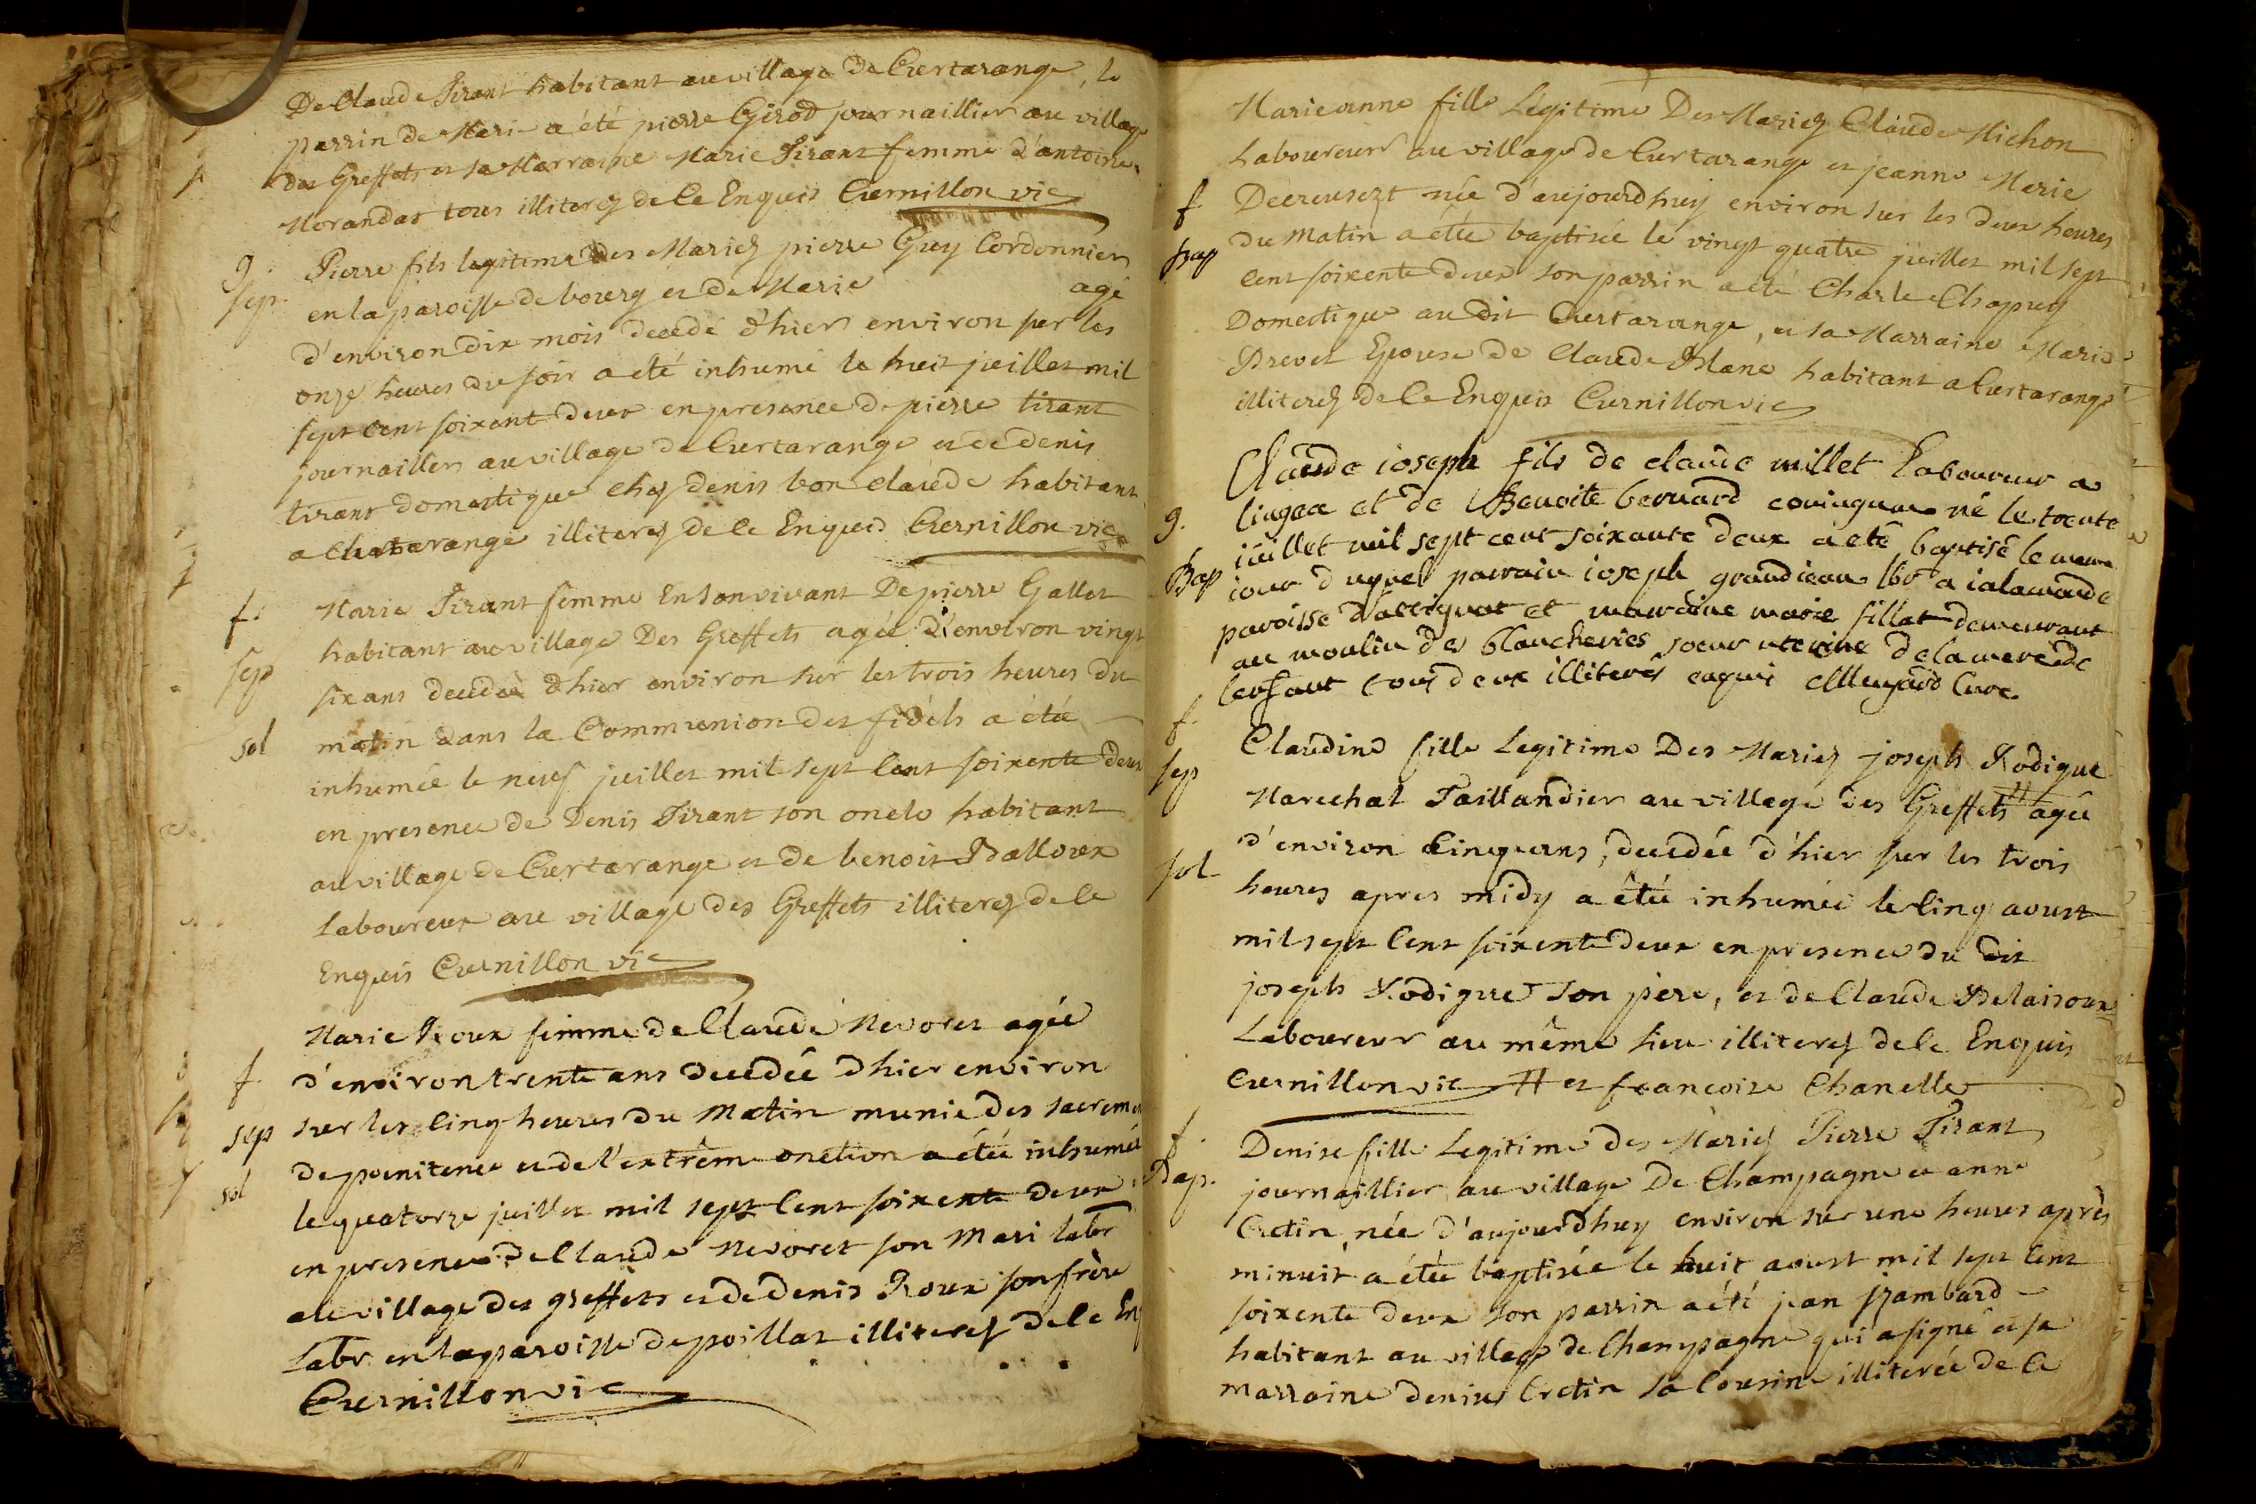 De Claude Tirant habitant au village de Curtarange, le
parrin de Mari a été pierre Girod journaillier au village
des Greffets et sa Marraine Marie Tirant femme d'antoine
Morandat tous illiterez de ce Enquis Curnillon vic
g. Pierre fils legitime des Mariez pierre Guy Cordonnier
sep. en la paroisse de bourg et de Marie agé
d'environ dix mois decedé d'hier environ sur les
onze heures du soir a eté inhumé le huit juillet mil
sept cent soixent deux en presence de pierre tirant
journaillier au village de Curtarange et de denis
tirant domestique chez denis bon claude habitant
a Curtarange illiterez de ce Enquis Curnillon vic
f. Marie Tirant femme En son vivant De pierre Gallet
habitant au village Des Greffets agée d'environ vingt
sep six ans decedée d'hier environ sur les trois heures du
sol matin dans la Communion des fidels a étée
inhumée le neuf juillet mil sept Cent soixente deux
en presence de Denis Tirant son oncle habitant
au village de Curtarange et de benoit Balloux
Laboureur au village des Greffets illiterez de ce
Enquis Curnillon vic
Marie Roux femme de Claude Nevoret agée
f. d'environ trente ans decedée d'hier environ
sep sur les Cinq heures du Matin munie des sacremen
sol de poenitence et de l'extrême onction a étée inhumée
le quatorze juillet mil sept Cent soixente deux
en presence de Claude Nevoret son Mari labr
au village des greffets et de denis Roux son frère
Labr. en la paroisse de poillat illiterez de ce En
Curnillon vic
Marieanne fille Legitime Des Mariez Claude Michon
Laboureur au village de Curtarange et jeanne Marie
f Decreusezt née d'aujourdhuy environ sur les deux heures
bap du matin a étée baptisée le vingt quatre juillet mil sept
cent soixente deux son parrin a été Charle Chapuy
Domestique au dit Curtarange, et sa Marraine Marie
Brevet Epouse de Claude Blanc habitant a Curtarange
illiterez de ce Enquis Curnillon vic
Claude ioseph fils de claude millet Laboureur a
g. lingea et de Benoite bernard conjugum né le trente
Bap iuillet mil sept cent soixante deux a été baptisé le meme
iour duquel parrain ioseph grandiean lbr a ialamonde
paroisse d'attignat et marraine marie fillat demeurant
au moulin des blancheries soeur uterine de la mere de
lenfant tous deux illiterés enquis Curé
f. Claudine fille Legitime Des Mariez joseph Rodigue
sep Marechal Taillandier au village des Greffets # agée
d'environ Cinq ans, decedée d'hier sur les trois
sol heures apres midy a étée inhumée le Cinq aoust
mil sept Cent soixente deux en presence du dit
joseph Rodigue son père, et de Claude Delairoux
Laboureur au même lieu illiterez de ce Enquis
Curnillon vic # et francoise Chanelle
f. Denise fille Legitime des Mariez Pierre Tirant
Bap. journaillier au village De Champagne et anne
Cretin, née d'aujourdhuy environ sur une heures après
minuit a étée baptisée le huit aoust mil sept Cent
soixente deux son parrin a été jean jzambard
habitant au village de Champagne qui a signé et sa
marraine denise Cretin sa Cousine illiterée de ce